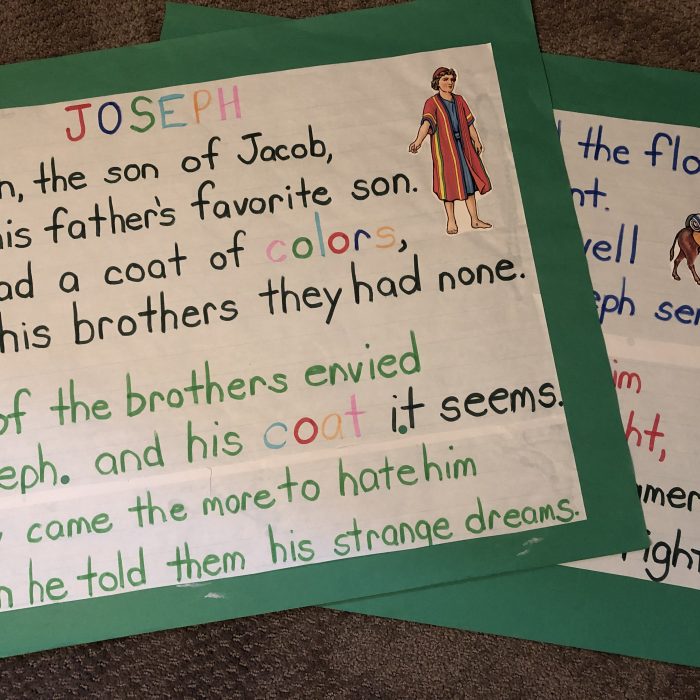 JOSEPH
n, the son of Jacob,
his father's favorite son.
ad a coat of colors,
his brothers they had none.
of the brothers envied
eph. and his coat it seems.
came the more to hate him
n he told them his strange dreams.
the flo
nt.
well
eph ser
im
ht,
mer
right